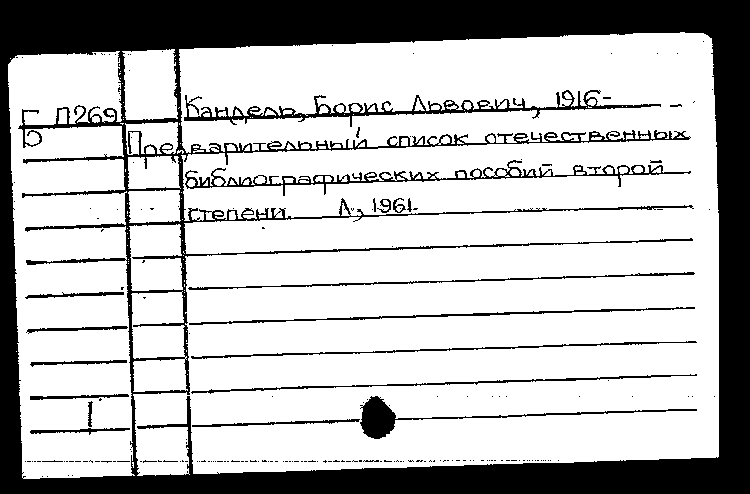 Г П269 Кандель, Борис Львович, 1916-
Б Предварительный список отечественных
библиографических пособий второй
степени. Л., 1961.